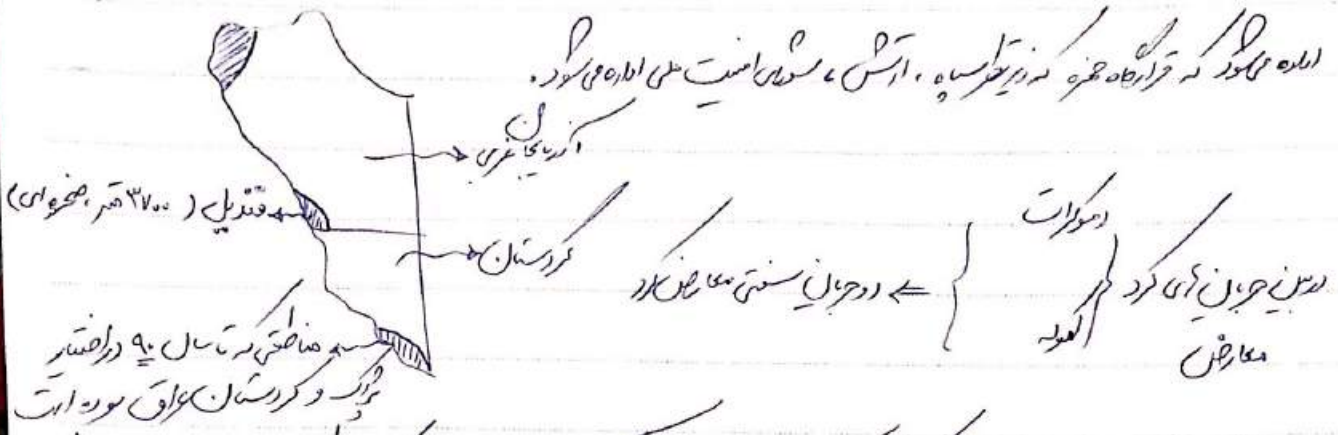 اداره می‌شود که قرارگاه حمزه که زیر نظر سپاه، ارتش، شورای امنیت ملی اداره می‌شود.
آذربایجان غربی
قندیل (۳۷۰۰ متر، صخره‌ای)
کردستان
در بین جریان‌های کرد معارض
دموکرات
کومله
دو جریان سنتی معارض کرد
مناطقی که تا سال ۹۰ در اختیار
پژاک و کردستان عراق بوده است